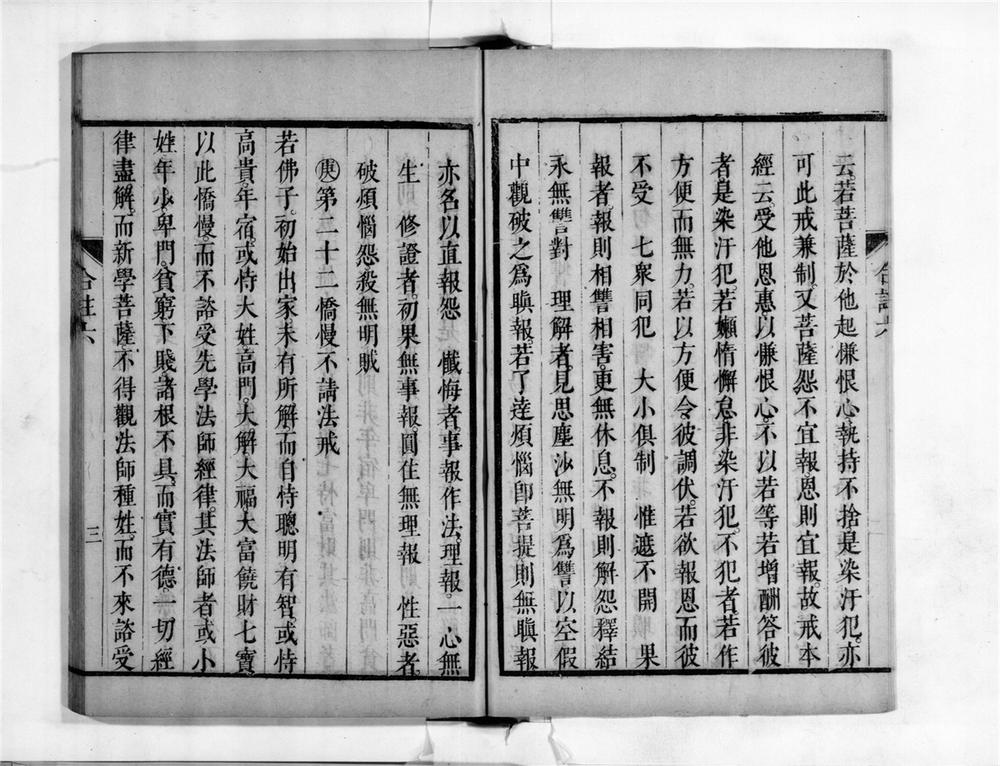 云。若菩薩於他起慊恨心。執持不捨是染汙犯。亦
可此戒兼制。又菩薩怨不宜報。恩則宜報。故戒本
經云。受他恩惠以慊恨心。不以若等若增酬答彼
者。是染汙犯。若嬾惰懈怠。非染汙犯。不犯者。若作
方便而無力。若以方便令彼調伏。若欲報恩而彼
不受　七衆同犯　大小俱制　惟遮不開　果
報者。報則相讐相害。更無休息。不報則解怨釋結
永無讐對　理解者。見思塵沙無明爲讐。以空假
中觀破之爲瞋報。若了達煩惱卽菩提則無瞋報
亦名以直報怨　懺悔者。事報作法。理報。一心無
生　修證者。初果無事報。圓住無理報　性惡者。
破煩惱怨殺無明賊
庚第二十二憍慢不請法戒
若佛子。初始出家未有所解。而自恃聰明有智。或恃
高貴。年宿。或恃大姓。高門。大解大福大富饒財七寶
以此憍慢。而不諮受先學法師經律。其法師者或小
姓。年少。卑門。貧窮下賤。諸根不具。而實有德。一切經
律盡解。而新學菩薩不得觀法師種姓。而不來諮受
合註六
合註六
三